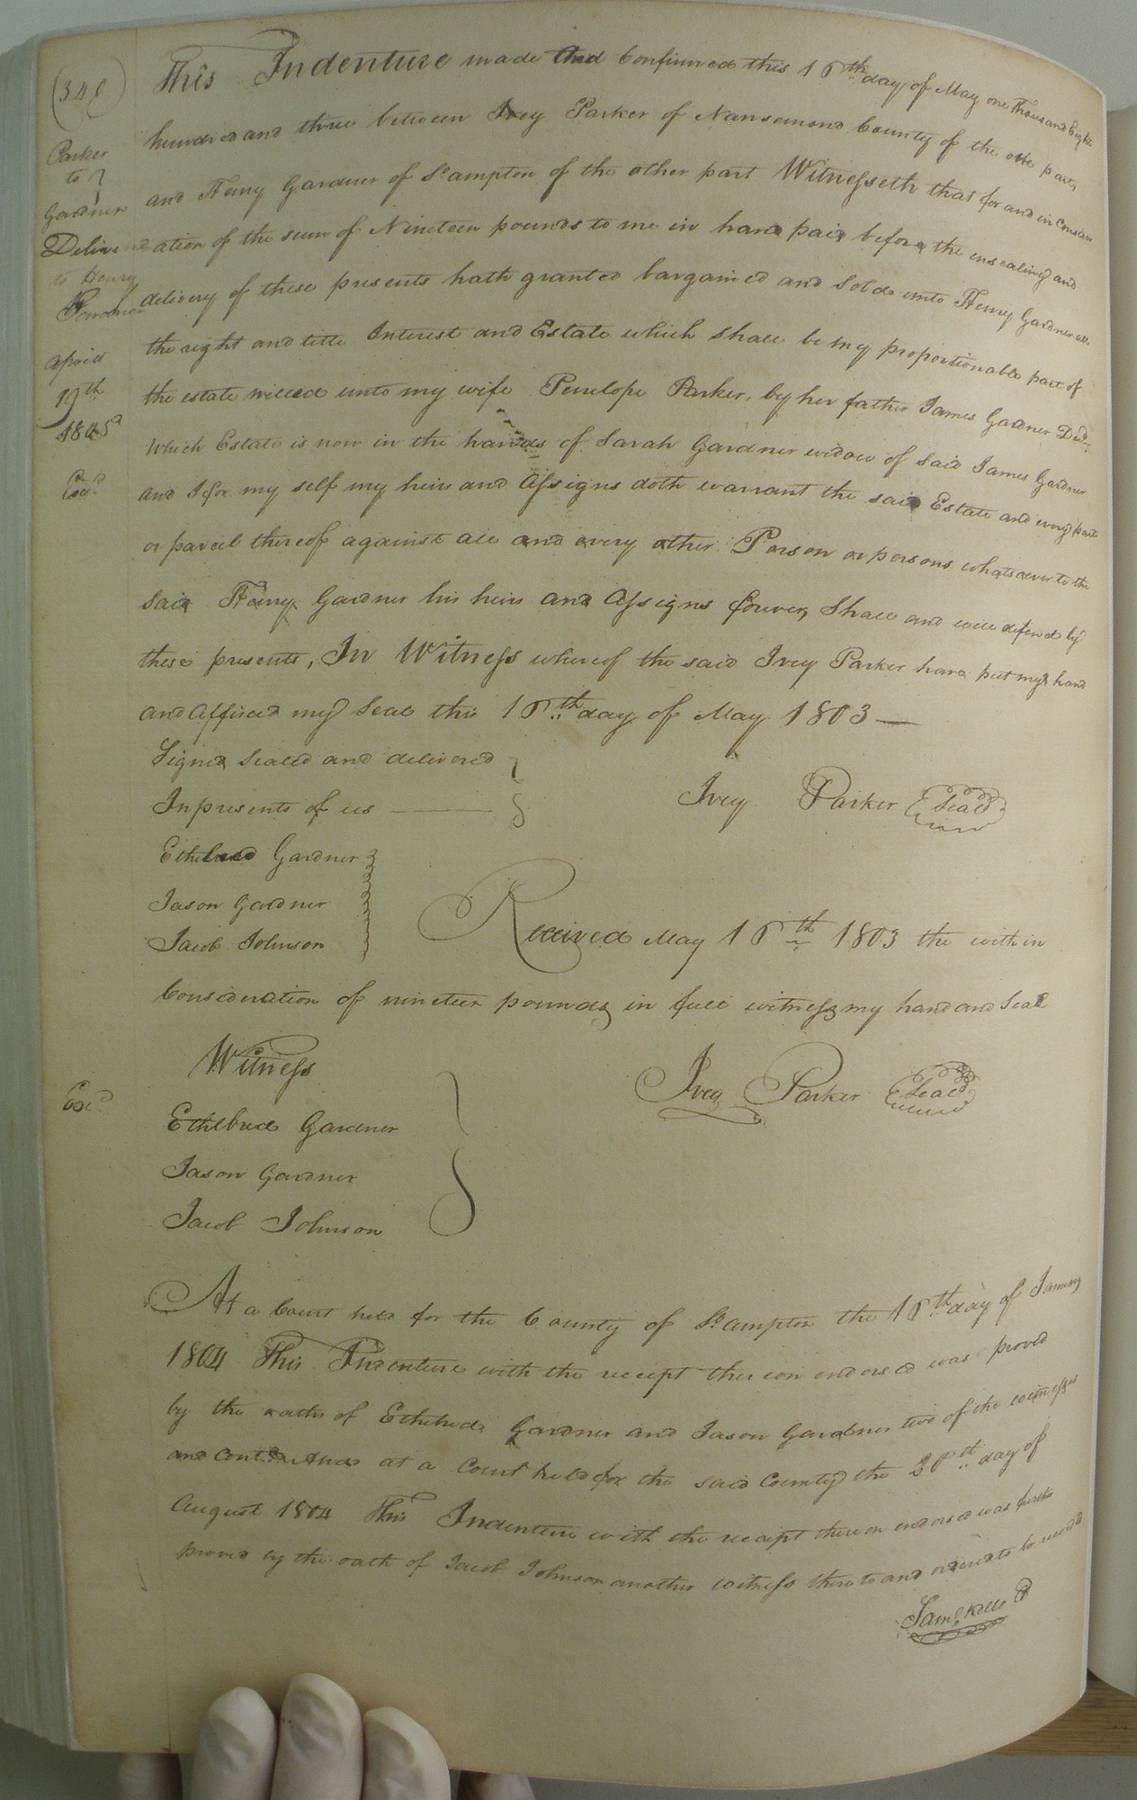 (348)
Parker
to
Gardner
Deliver
to Henry
Gardner
April
19th
1805
Exd.
This Indenture made and Confirmed this 16th day of May one Thousand Eight
hundred and three between Ivey Parker of Nansemond County of the one part,
and Henry Gardner of So.ampton of the other part Witnesseth that for and in Consider
ation of the sum of Nineteen pounds to me in hand paid before the ensealing and
delivery of these presents hath granted bargained and Sold unto Henry Gardner all
the right and title Interest and Estate which shall be my proportionable part of
the estate willed unto my wife Penelope Parker, by her father James Gardner Decd.
Which Estate is now in the hands of Sarah Gardner widow of said James Gardner
and I for my self my heirs and Assigns doth warrant the said Estate and every part
or parcel thereof against all and every other Person or persons whatsoever to the
said Henry Gardner his heirs and Assigns forever, Shall and will defend by
these presents, In Witness whereof the said Ivey Parker have put my hand
and affixed my Seal this 16th day of May 1803 —
Signed Sealed and delivered
In presents of us —
Ivey Parker (Seal)
Ethelred Gardner
Jason Gardner
Jacob Johnson
Received May 16th 1803 the within
Consideration of nineteen pounds in full witness my hand and Seal
Witness
Ivey Parker (Seal)
Exd.
Ethelbred Gardner
Jason Gardner
Jacob Johnson
At a Court held for the County of So.ampton the 16th day of January
1804 This Indenture with the receipt thereon endorsed was proved
by the oaths of Ethelred Gardner and Jason Gardner two of the witnesses
and at a Court held for the said County the day of
August 1804 This Indenture with the receipt thereon endorsed was further
proved by the oath of Jacob Johnson another witness thereto and ordered to be recorded
Saml. Kello